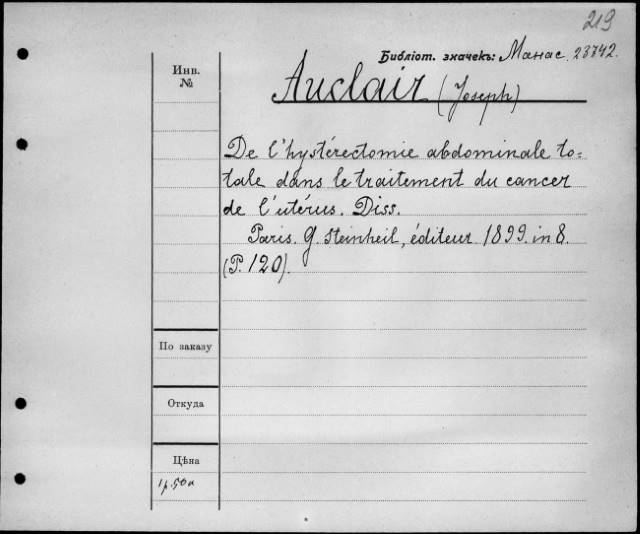 219
Библіот. значекъ: Манас. 23742.
Инв.
№
Auclair (Joseph)
De l'hystérectomie abdominale to=
tale dans le traitement du cancer
de l'utérus. Diss.
Paris. G. Steinheil, éditeur 1899. in 8.
(P. 120).
По заказу
Откуда
Цѣна
1р. 50к